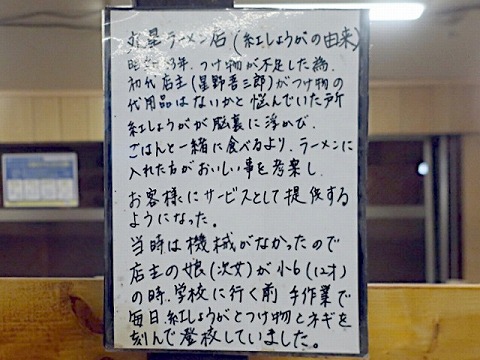 丸星ラーメン店(紅しょうがの由来)
昭和33年、つけ物が不足した為、
初代店主(星野吾三郎)がつけ物の
代用品はないかと悩んでいた所
紅しょうがが脳裏に浮かび、
ごはんと一緒に食べるより、ラーメンに
入れた方がおいしい事を考案し、
お客様にサービスとして提供する
ようになった。
当時は機械がなかったので
店主の娘(次女)が小6(12才)
の時、学校に行く前 手作業で
毎日紅しょうがとつけ物とネギを
刻んで登校していました。